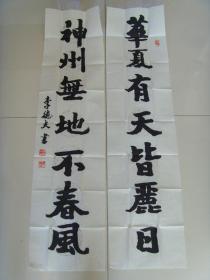 華夏有天皆麗日
神州無地不春風
李德文書